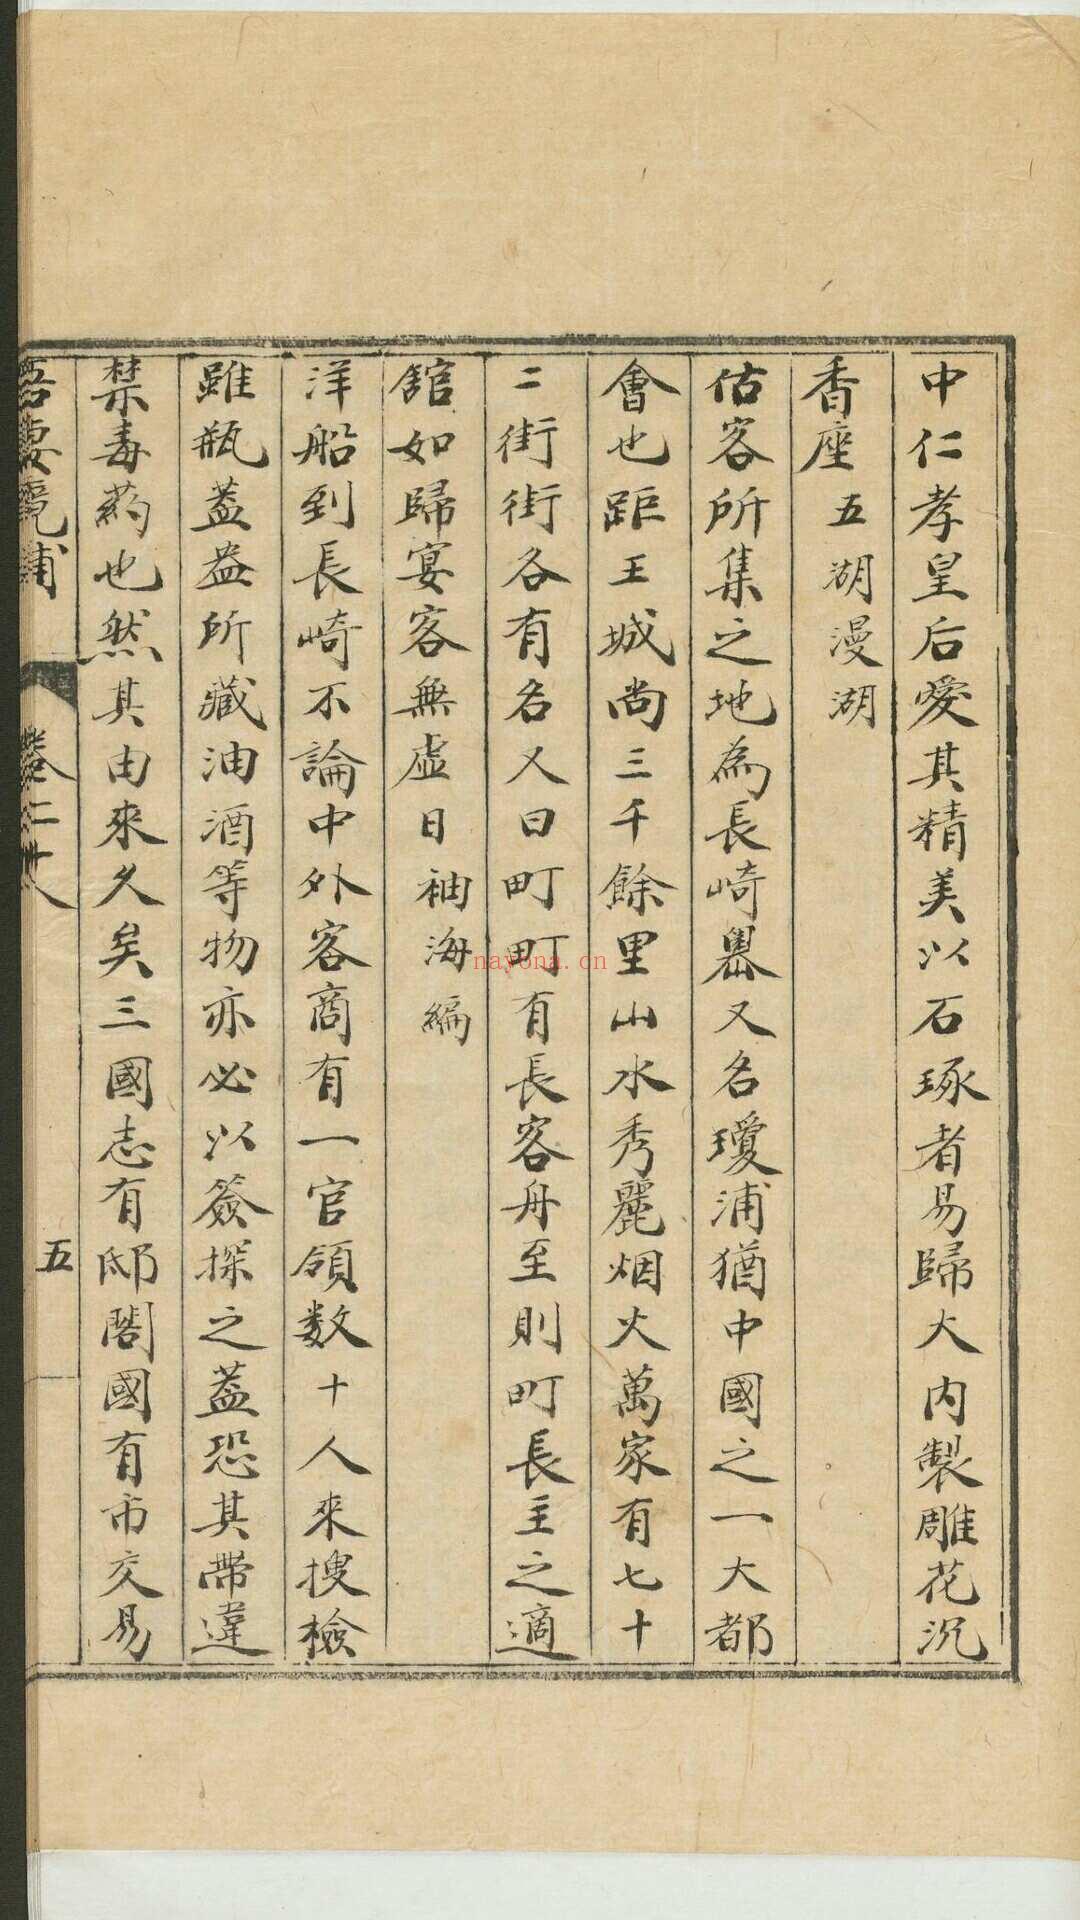 中仁孝皇后愛其精美以石琢者易歸大内製雕花沉
香座五湖漫湖
估客所集之地為長崎嶴又名瓊浦猶中國之一大都
會也距王城尚三千餘里山水秀麗烟火萬家有七十
二街街各有名又曰町町有長客舟至則町長主之適
舘如歸宴客無虛日袖海編
洋船到長崎不論中外客商有一官領数十人來搜檢
雖瓶盖盎所藏油酒等物亦必以簽探之盖恐其帶違
禁毒葯也然其由來久矣三國志有邸閣國有市交易
卷二十八
五
nayona.cn